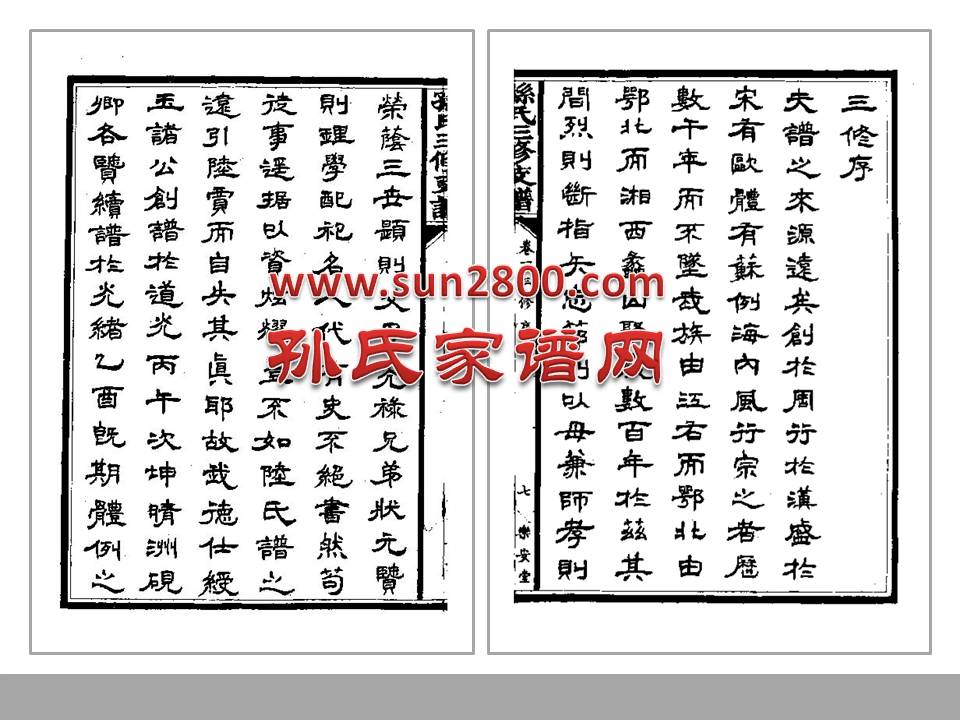 三修序
夫譜之來源遠矣創於周行於漢盛於
宋有歐體有蘇例海內風行宗之者歷
數千年而不墜我族由江右而鄂北由
鄂北而湘西蠡山聚數百年於茲其
間烈則斷指矢節則以母兼師孝則
孫氏三修支譜
卷一三修序
七
樂安堂
榮蔭三世題則允祿兄弟狀元賢
則理學配祀名人代有史不絕書然苟
從事遙據以資炫耀豈不如陸氏譜之
遠引陸賈而自失其眞耶故武德仕綬
玉諸公創譜於道光丙午次坤晴洲硯
卿各賢續譜於光緒乙酉旣期體例之
www.sun2800.com
孙氏家谱网